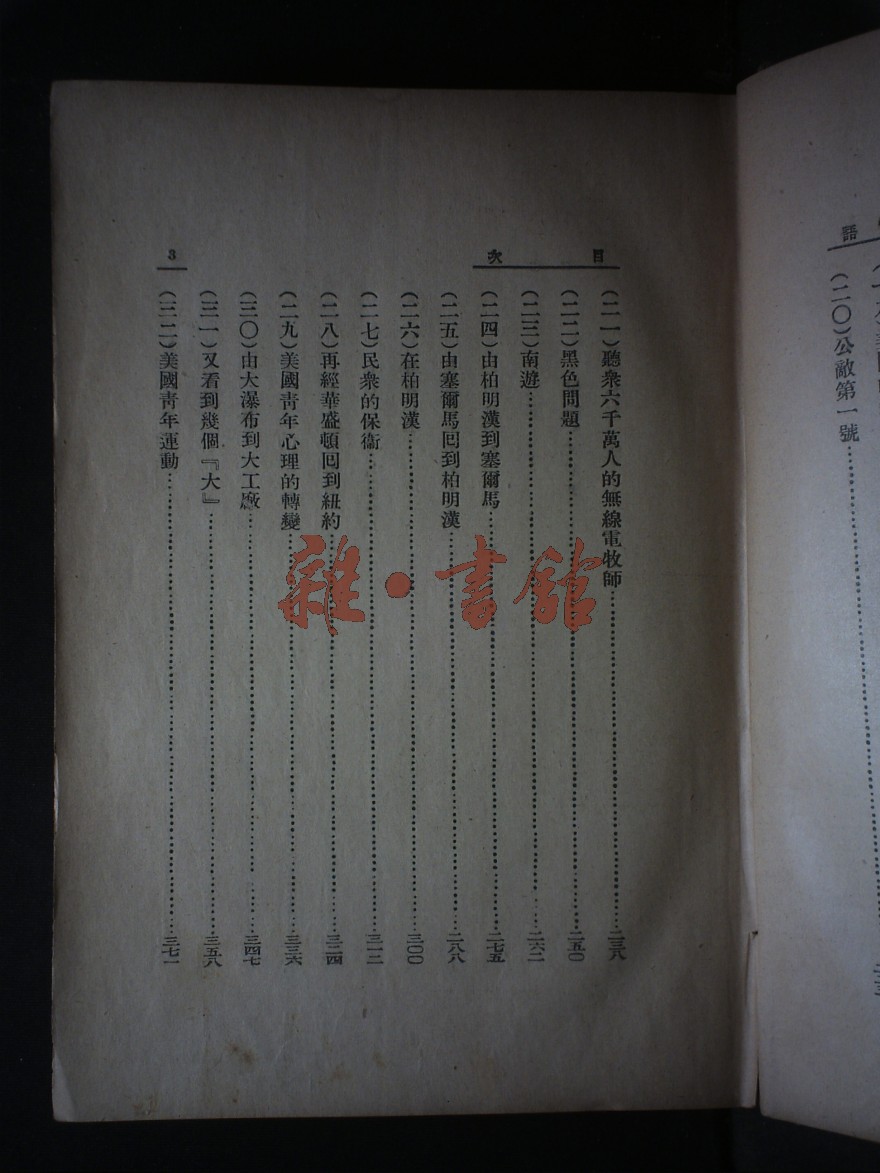 語
(二〇)公敵第一號
目次
(二一)聽衆六千萬人的無線電牧師……二三八
(二二)黑色問題……二五〇
(二三)南遊……二六二
(二四)由柏明漢到塞爾馬……二七五
(二五)由塞爾馬囘到柏明漢……二八八
(二六)在柏明漢……三〇〇
(二七)民衆的保衞……三一二
(二八)再經華盛頓囘到紐約……三二四
(二九)美國靑年心理的轉變……三三六
(三〇)由大瀑布到大工廠……三四七
(三一)又看到幾個『大』……三五八
(三二)美國靑年運動……三七一
3
雜·書館